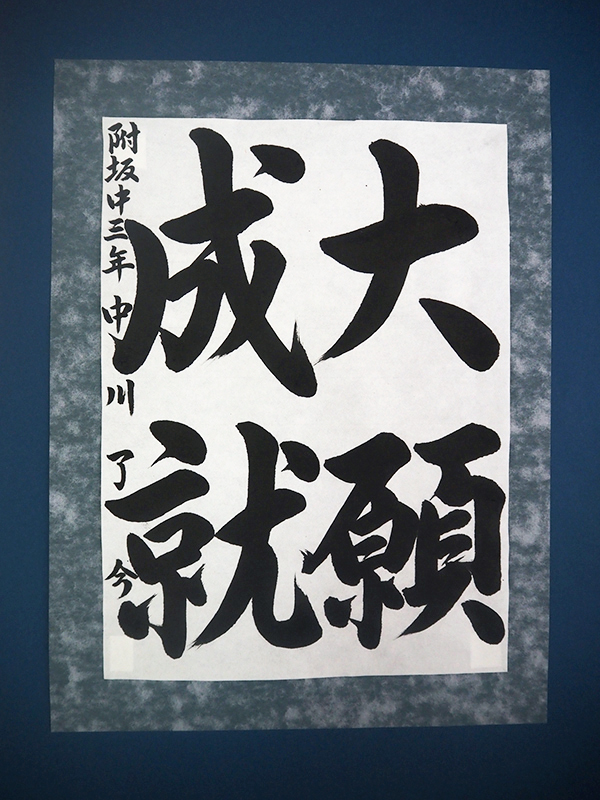 大願
成就
附坂中三年 中川了今